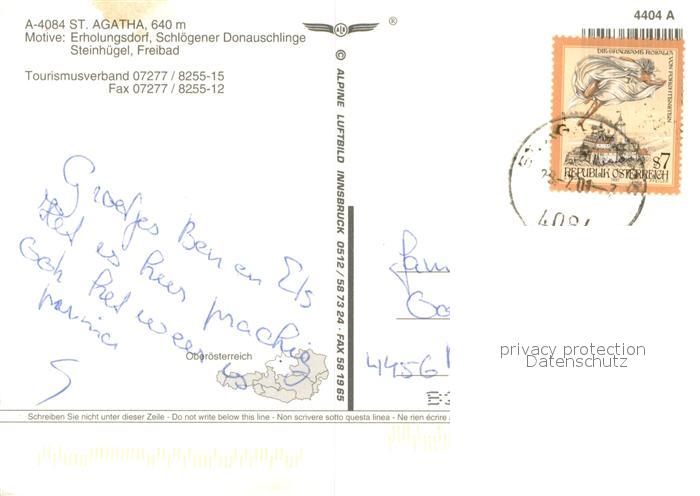 A-4084 ST. AGATHA, 640 m
Motive: Erholungsdorf, Schlögener Donauschlinge
Steinhügel, Freibad
Tourismusverband 07277 / 8255-15
Fax 07277 / 8255-12
®
© ALPINE LUFTBILD INNSBRUCK 0512 / 58 73 24 · FAX 58 19 65
4404 A
DIE GRAUSAME ROSALIA VON FORCHTENSTEIN
S7
REPUBLIK ÖSTERREICH
4084
Groetjes Ben en Els
Het is hier prachtig
Ook het weer is
prima
Fam
4456
privacy protection
Datenschutz
Oberösterreich
Schreiben Sie nicht unter dieser Zeile - Do not write below this line - Non scrivere sotto questa linea - Ne rien écrire